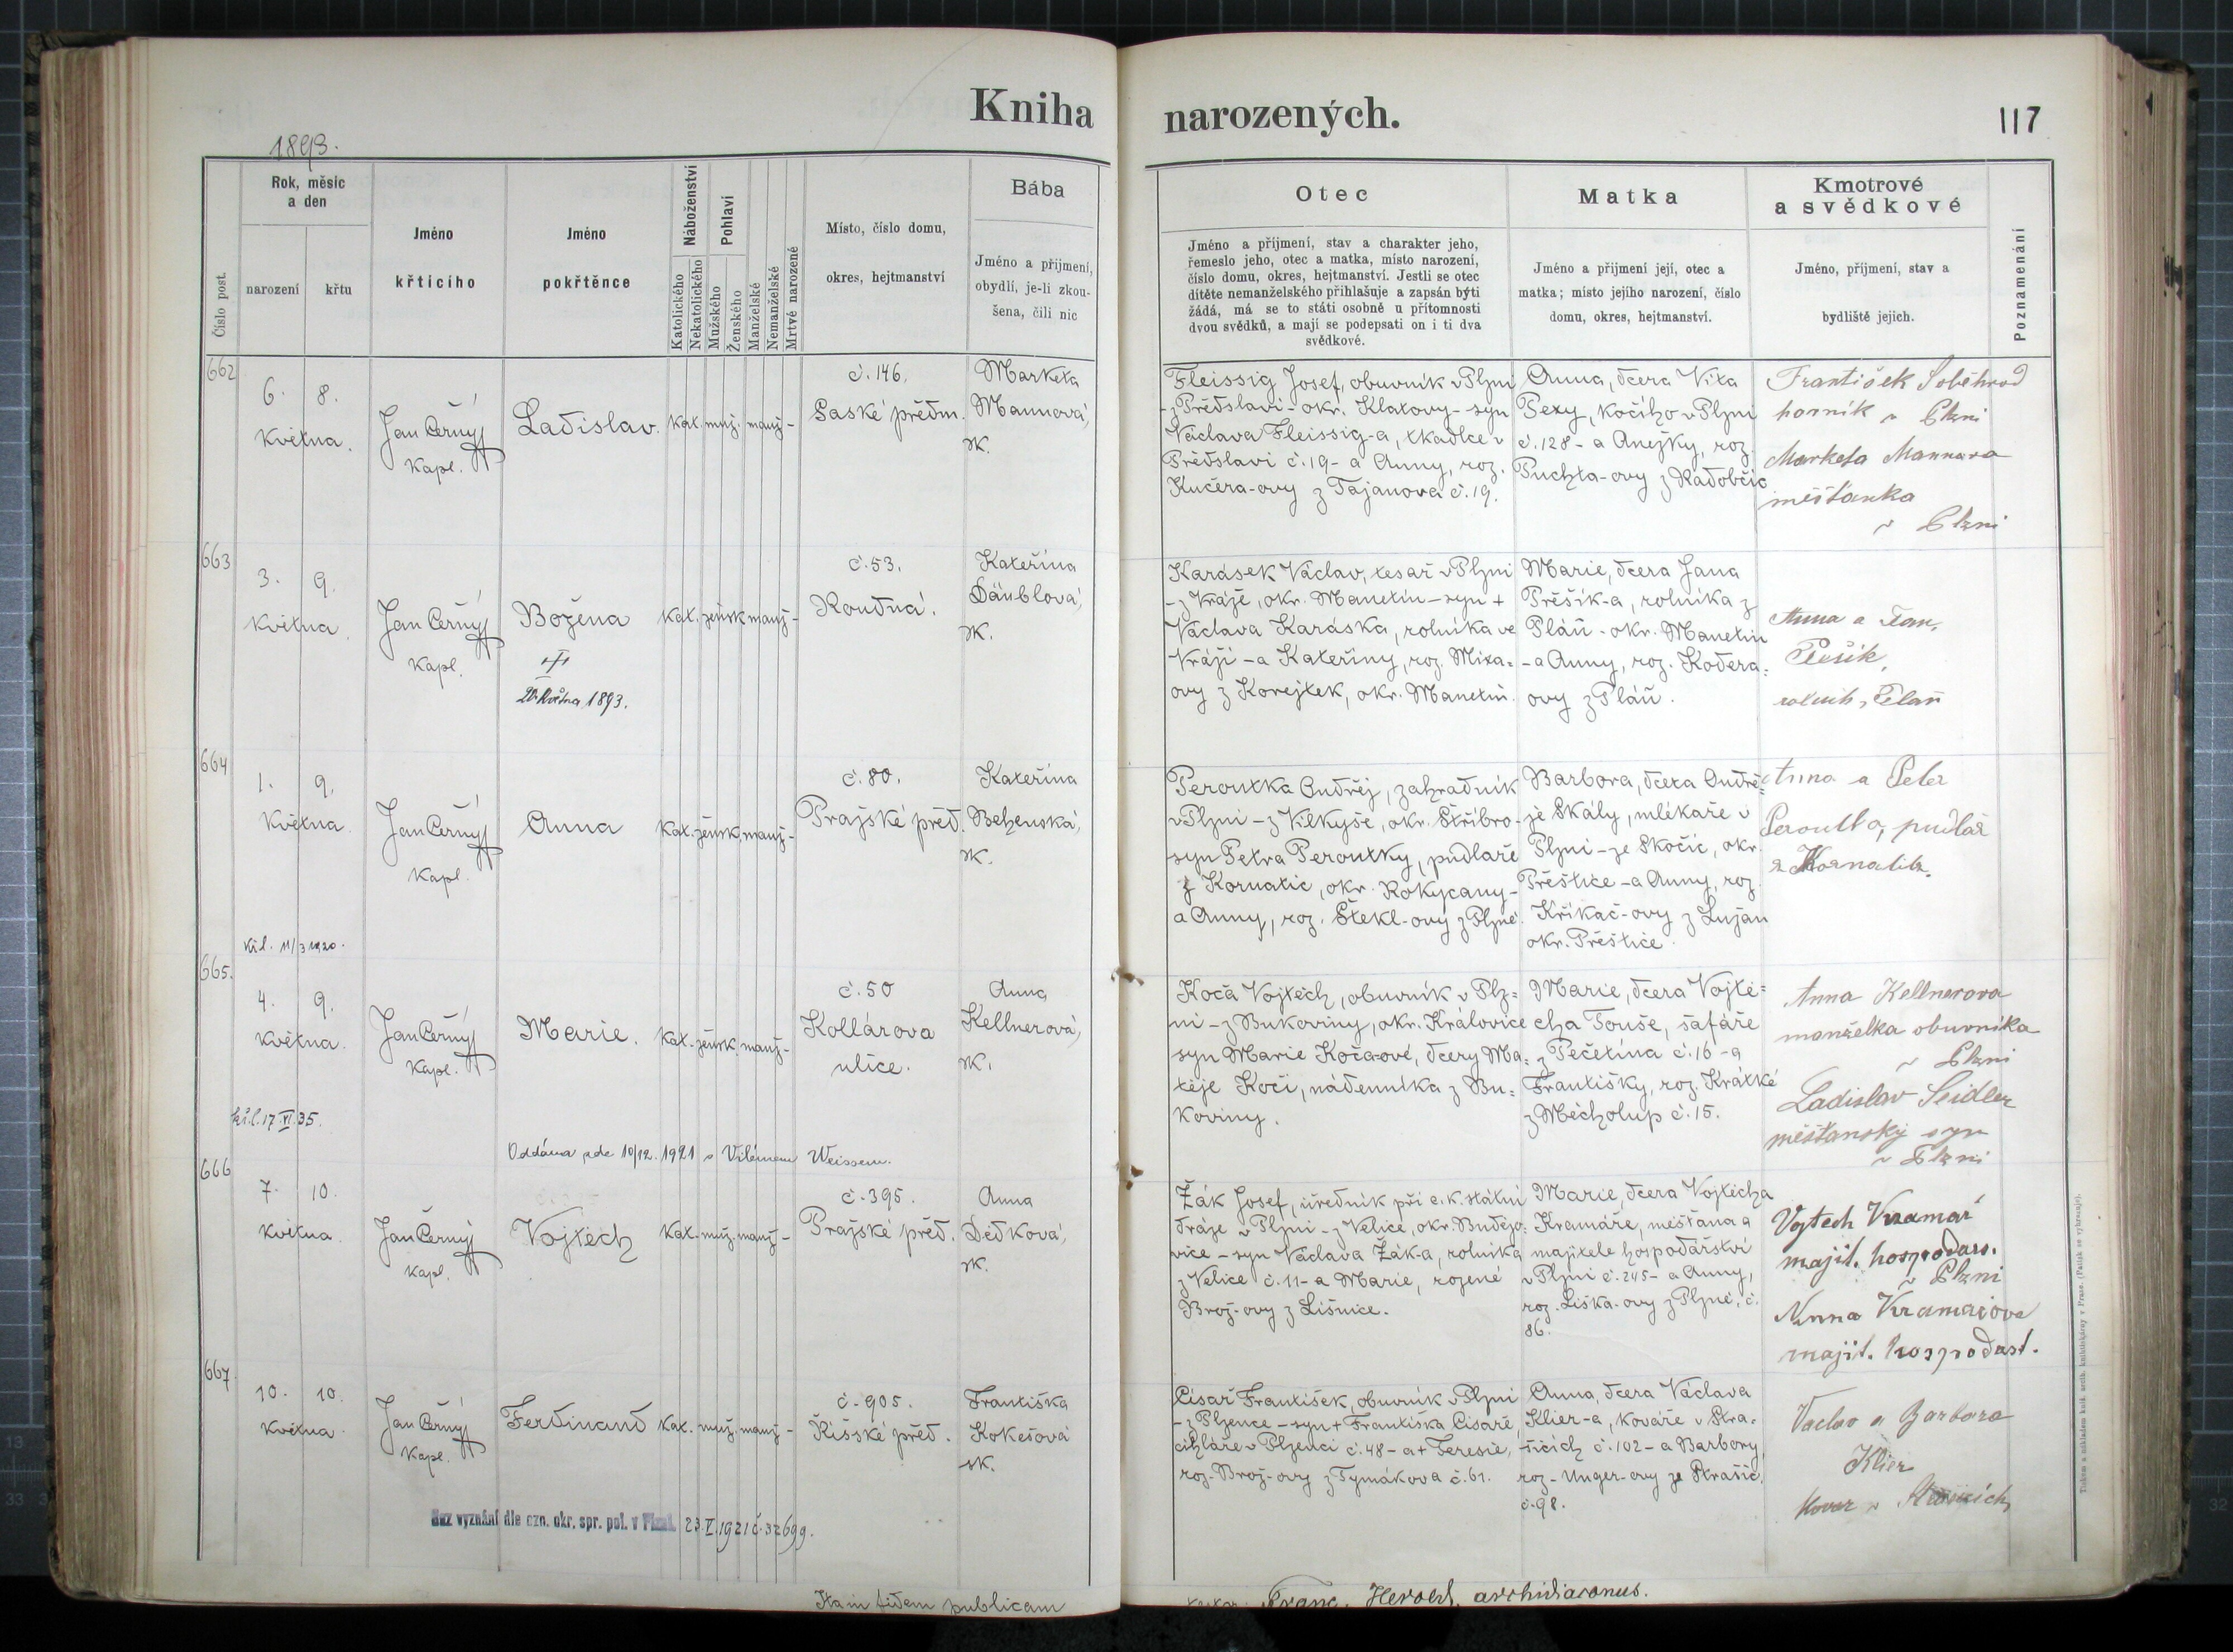 Kniha narozených.
117
1893.
Číslo post.
Rok, měsíc
a den
narození
křtu
Jméno
křtícího
Jméno
pokřtěnce
Náboženství
Katolického
Nekatolického
Pohlaví
Mužského
Ženského
Manželské
Nemanželské
Mrtvě narozené
Místo, číslo domu,
okres, hejtmanství
Bába
Jméno a příjmení,
obydlí, je-li zkou-
šena, čili nic
Otec
Jméno a příjmení, stav a charakter jeho,
řemeslo jeho, otec a matka, místo narození,
číslo domu, okres, hejtmanství. Jestli se otec
dítěte nemanželského přihlašuje a zapsán býti
žádá, má se to státi osobně u přítomnosti
dvou svědků, a mají se podepsati on i ti dva
svědkové.
Matka
Jméno a příjmení její, otec a
matka; místo jejího narození, číslo
domu, okres, hejtmanství.
Kmotrové
a svědkové
Jméno, příjmení, stav a
bydliště jejich.
Poznamenání
662
6. 8.
Května.
Jan Černý
Kapl.
Ladislav.
Kat. muž. manž-
č. 146.
Saské předm.
Marketa
Mannová,
zk.
Fleissig Josef, obuvník v Plzni
- z Předslavi - okr. Klatovy - syn
Václava Fleissig-a, tkadlce v
Předslavi č. 19 - a Anny, roz.
Kučera-ovy z Tajanova č. 19.
Anna, dcera Víta
Pexy, kočího v Plzni
č. 128 - a Anežky, roz.
Puchta-ovy z Radobčic
František Soběhrad
horník v Plzni
Marketa Mannova
měšťanka
v Plzni
663
3. 9.
Května.
Jan Černý
Kapl.
Božena
20. Května 1893.
Kat. žensk. manž-
č. 53.
Roudná.
Kateřina
Däublová,
zk.
Karásek Václav, tesař v Plzni
- z Vráže, okr. Manetín - syn +
Václava Karáska, rolníka ve
Vráži - a Kateřiny, roz. Mixa-
ovy z Korejtek, okr. Manetín.
Marie, dcera Jana
Pěšík-a, rolníka z
Pláň - okr. Manetín
- a Anny, roz. Kodera-
ovy z Pláň.
Anna a Jan.
Pěšík,
rolník, Pláň
664
1. 9.
Května.
Jan Černý
Kapl.
Anna
Kat. žensk. manž-
č. 80.
Pražské před.
Kateřina
Behenská,
zk.
Peroutka Ondřej, zahradník
v Plzni - z Vilkyše, okr. Stříbro -
syn Petra Peroutky, pudlaře
z Kornatic, okr. Rokycany -
a Anny, roz. Štekl-ovy z Plzně.
Barbora, dcera Ondře-
je Skály, mlékaře v
Plzni - ze Skočic, okr.
Přeštice - a Anny, roz.
Křikač-ovy z Lužan
okr. Přeštice.
Anna a Peter
Peroutka, pudlař
z Kornatitz.
665.
4. 9.
Května.
Jan Černý
Kapl.
Marie.
Kat. žensk. manž-
č. 50
Kollárova
ulice.
Anna
Kellnerová,
zk.
Koča Vojtěch, obuvník v Plz-
ni - z Bukoviny, okr. Kralovice
syn Marie Koča-ové, dcery Ma-
těje Koči, nádenníka z Bu-
koviny.
Marie, dcera Vojtě-
cha Touše, šafáře
z Pečetína č. 16 - a
Františky, roz. Krátké
z Měcholup č. 15.
Anna Kellnerova
manželka obuvníka
v Plzni
Ladislav Seidler
měšťanský syn
v Plzni
Oddána zde 10/12. 1921 s Vilémem Weissem.
666
7. 10.
Května
Jan Černý
Kapl.
Vojtěch
Kat. muž. manž-
č. 395.
Pražské před.
Anna
Dědková,
zk.
Žák Josef, úředník při c.k. státní
dráze v Plzni - z Velice, okr. Budějo-
vice - syn Václava Žák-a, rolníka
z Velice č. 11 - a Marie, rozené
Brož-ovy z Lišnice.
Marie, dcera Vojtěcha
Kramáře, měšťana a
majitele hospodářství
v Plzni č. 245 - a Anny,
roz. Liška-ovy z Plzně, č.
86.
Vojtech Kramař
majit. hospodars.
v Plzni
Anna Kramařova
majit. hospodast.
667
10. 10.
Května
Jan Černý
Kapl.
Ferdinand
Kat. muž. manž-
č. 905.
Říšské před.
Františka
Kokešová
zk.
Císař František, obuvník v Plzni
- z Plzence - syn + Františka Císaře,
cihláře v Plzenci č. 48 - a + Teresie,
roz. Brož-ovy z Tymákova č. 61.
Anna, dcera Václava
Klier-a, kováře v Stra-
šicích č. 102 - a Barbory,
roz. Unger-ovy ze Strašic
č. 98.
Vaclav a Barbora
Klier
Kovar v
Bez vyznání dle ozn. okr. spr. pol. v Plzni. 23. V. 1921 č. 32699.
Franc. Herold, archidiaconus.